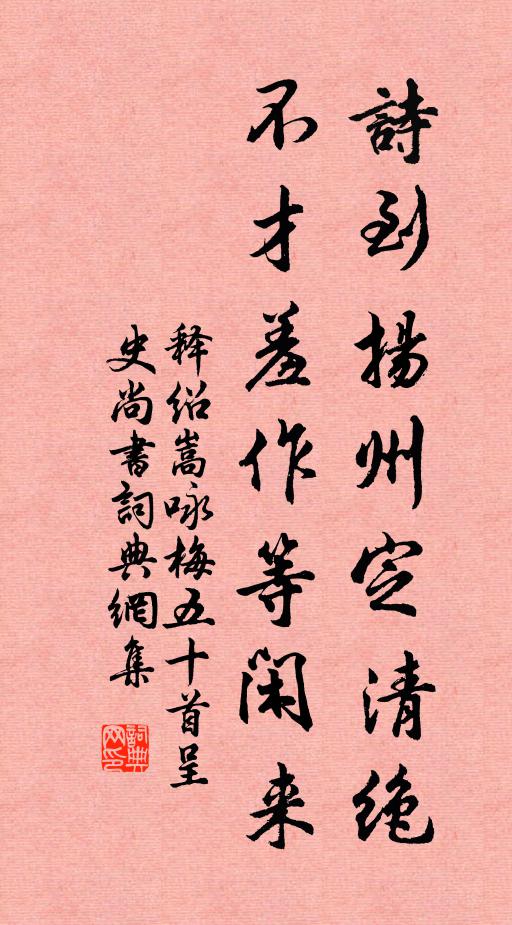 詩到揚州定清絶
不才羞作等閑来
释绍嵩咏梅五十首呈
史尚書詞典網集
詞典
网印